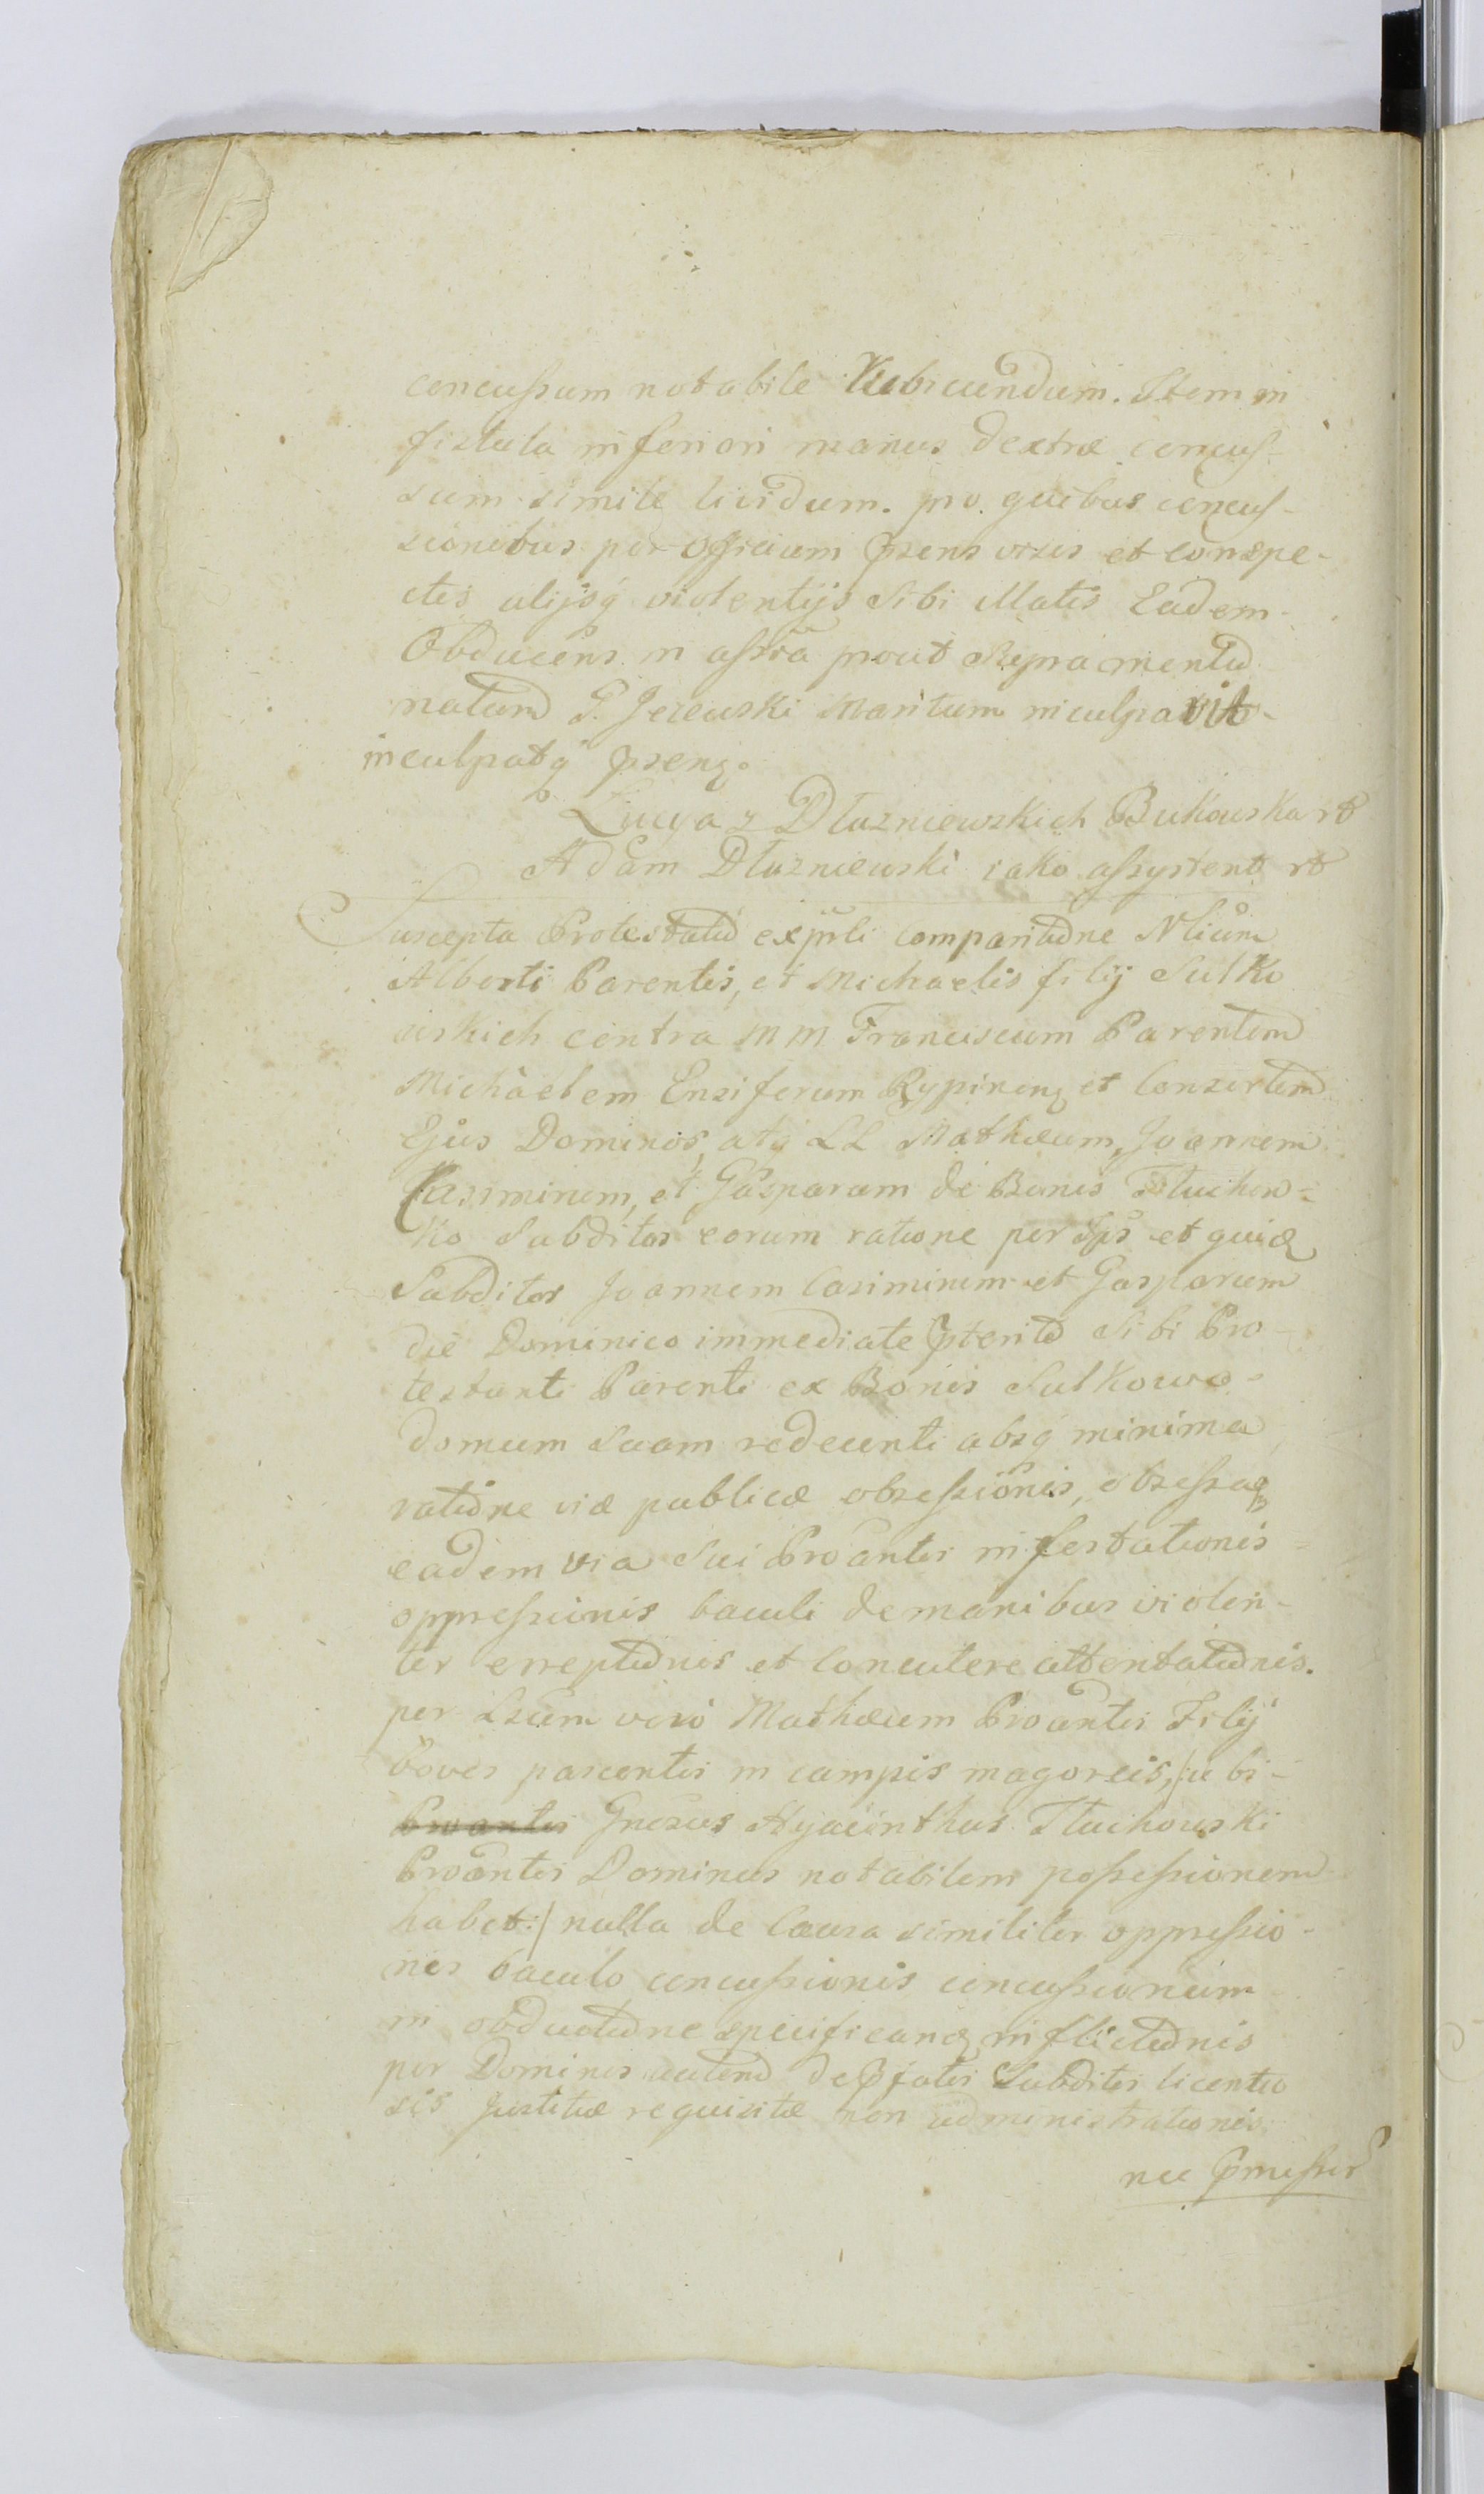 concussum notabile Rubicundum. Item in
fistula inferiori manus dextræ concus-
sum simile lividum. pro quibus concus-
sionibus per Officium Pręns visis et conspe-
ctis alijsq violentijs Sibi illatis Eadem
Obducens in assña prout supra mentio
natum G. Jezewski Maritum inculpavit
inculpatq pręns.
Lucya z Dłuzniewskich Bukowska rt
Adam Dłuzniewski iako assystent rt
Suscepta Protestatio ex pñli comparitione Nlium
Alberti Parentis, et Michaelis filij Sulko
wskich contra MM Franciscum Parentem
Michàelem Ensiferum Rypinens et Consortem
Ejus Dominos, atq LL Mathæum, Joannem
Casimirum, et Gasparum de Bonis Tłuchow-
ko Subditos eorum ratione per Ips et quid
Subditos Joannem Casimirum et Gasparum
die Dominico immediate pterito Sibi Pro-
testanti Parenti ex Bonis Sulkowo
domum suam redeunti absq minima
ratione viæ publicæ obsessionis, obsessaq
eadem via Sui Proantis infestationis
oppressionis baculi de manibus violen-
ter ereptionis et Concutere attentationis.
per Lsum verò Mathæum Proantis Filij
boves pascentis in campis magoreis, /: ubi
Gnosus Hyacinthus Tłuchowski
Proantis Dominus notabilem possessionem
habet :/ nulla de Causa similiter oppressio-
nis baculo concussionis concussionum
in obductione specificand inflictionis
per Dominos autem de pfatis Subditis licentio
sis Justitiæ requisitæ non administrationis
nec pmissor